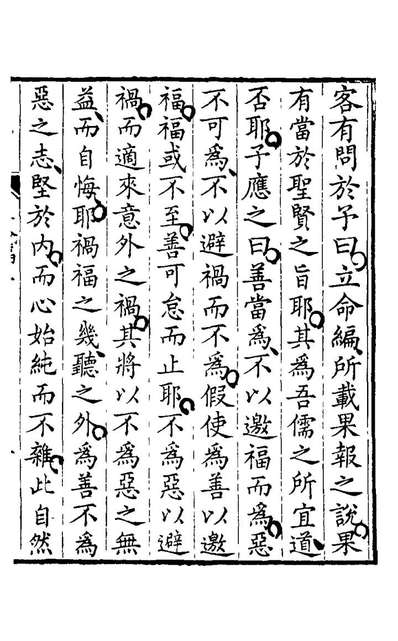 客有問於予曰立命編所載果報之說果
有當於聖賢之旨耶其為吾儒之所宜道
否耶予應之曰善當為不以邀福而為惡
不可為不以避禍而不為假使為善以邀
福福或不至善可怠而止耶不為惡以避
禍而適來意外之禍其將以不為惡之無
益而自悔耶禍福之幾聽之外為善不為
惡之志堅於內而心始純而不雜此自然